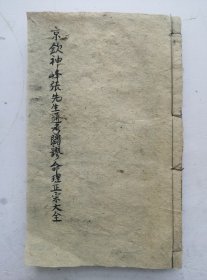 京欽神峰張先生通考闢謬命理正宗大全